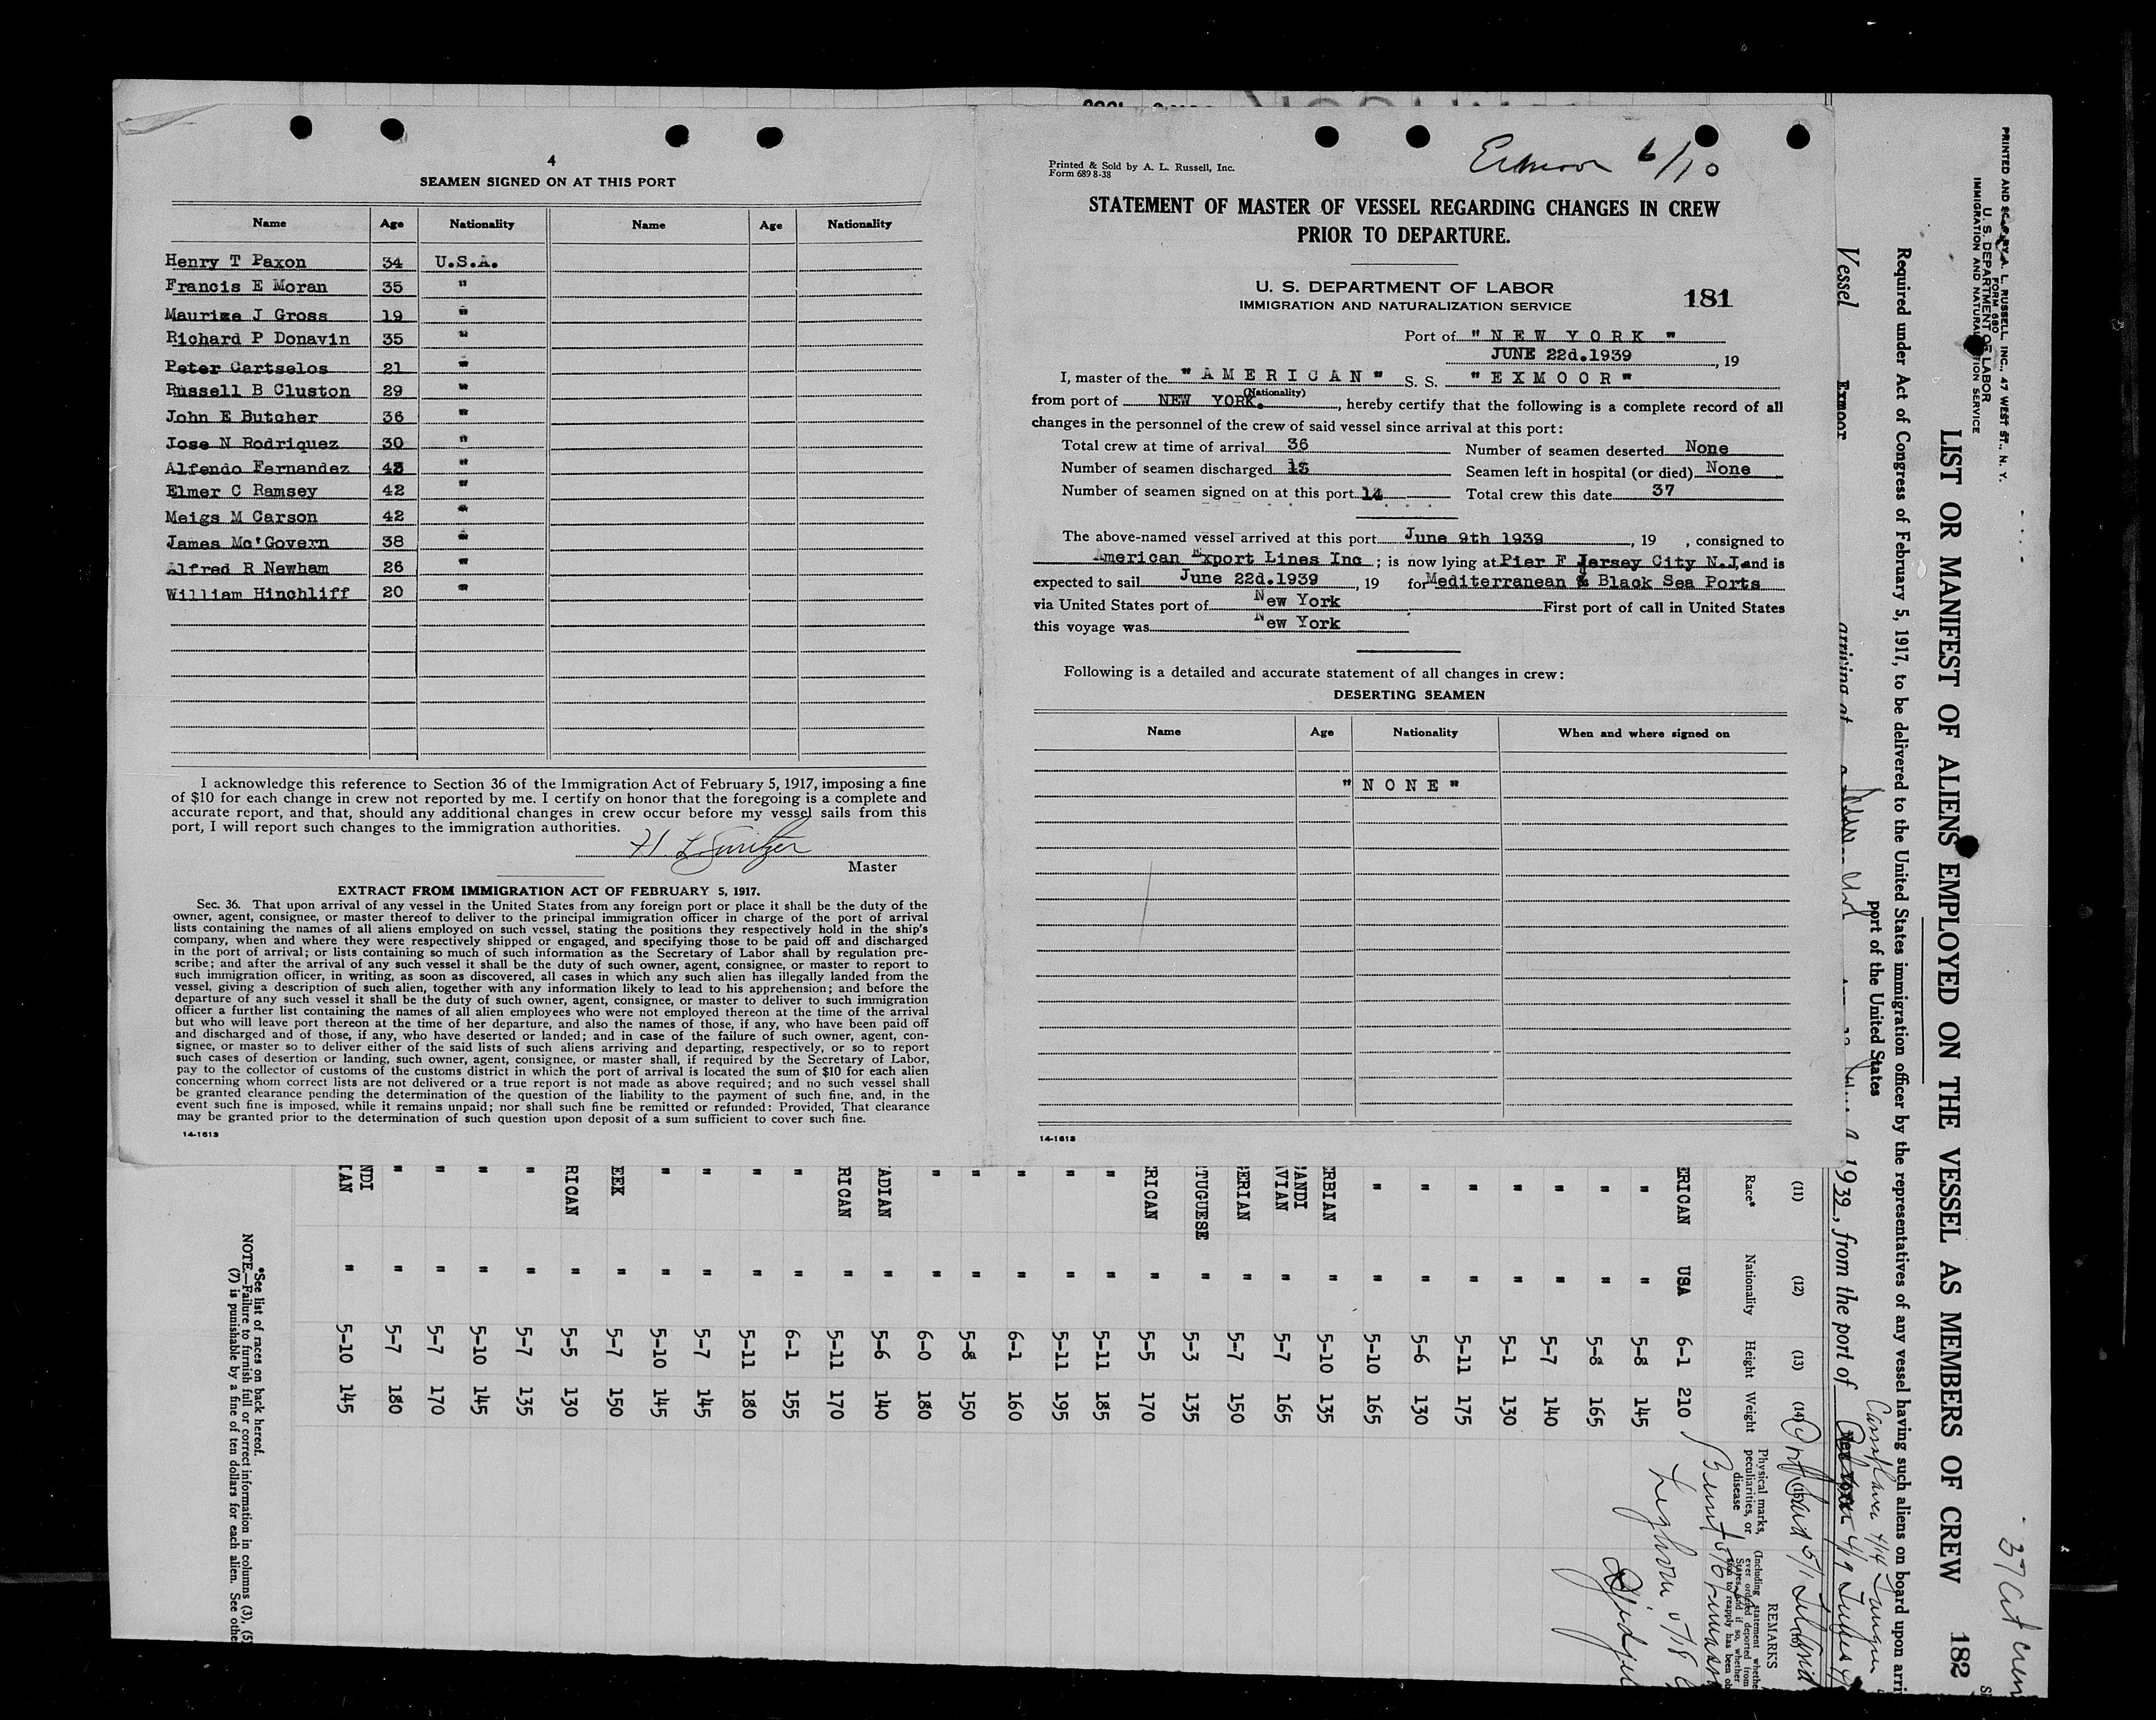 4
SEAMEN SIGNED ON AT THIS PORT
Name Age Nationality Name Age Nationality
Henry T Paxon 34 U.S.A.
Francis E Moran 35 "
Maurize J Gross 19 "
Richard P Donavin 35 "
Peter Cartselos 21 "
Russell B Cluston 29 "
John E Butcher 36 "
Jose N Rodriquez 30 "
Alfendo Fernandez 43 "
Elmer C Ramsey 42 "
Meigs M Carson 42 "
James Mc'Govern 38 "
Alfred R Newham 26 "
William Hinchliff 20 "
I acknowledge this reference to Section 36 of the Immigration Act of February 5, 1917, imposing a fine
of $10 for each change in crew not reported by me. I certify on honor that the foregoing is a complete and
accurate report, and that, should any additional changes in crew occur before my vessel sails from this
port, I will report such changes to the immigration authorities.
Master
EXTRACT FROM IMMIGRATION ACT OF FEBRUARY 5, 1917.
Sec. 36. That upon arrival of any vessel in the United States from any foreign port or place it shall be the duty of the
owner, agent, consignee, or master thereof to deliver to the principal immigration officer in charge of the port of arrival
lists containing the names of all aliens employed on such vessel, stating the positions they respectively hold in the ship's
company, when and where they were respectively shipped or engaged, and specifying those to be paid off and discharged
in the port of arrival; or lists containing so much of such information as the Secretary of Labor shall by regulation pre-
scribe; and after the arrival of any such vessel it shall be the duty of such owner, agent, consignee, or master to report to
such immigration officer, in writing, as soon as discovered, all cases in which any such alien has illegally landed from the
vessel, giving a description of such alien, together with any information likely to lead to his apprehension; and before the
departure of any such vessel it shall be the duty of such owner, agent, consignee, or master to deliver to such immigration
officer a further list containing the names of all alien employees who were not employed thereon at the time of the arrival
but who will leave port thereon at the time of her departure, and also the names of those, if any, who have been paid off
and discharged and of those, if any, who have deserted or landed; and in case of the failure of such owner, agent, con-
signee, or master so to deliver either of the said lists of such aliens arriving and departing, respectively, or so to report
such cases of desertion or landing, such owner, agent, consignee, or master shall, if required by the Secretary of Labor,
pay to the collector of customs of the customs district in which the port of arrival is located the sum of $10 for each alien
concerning whom correct lists are not delivered or a true report is not made as above required; and no such vessel shall
be granted clearance pending the determination of the question of the liability to the payment of such fine, and, in the
event such fine is imposed, while it remains unpaid; nor shall such fine be remitted or refunded: Provided, That clearance
may be granted prior to the determination of such question upon deposit of a sum sufficient to cover such fine.
14-1613
Printed & Sold by A. L. Russell, Inc.
Form 689 8-38
Exmoor 6/10
STATEMENT OF MASTER OF VESSEL REGARDING CHANGES IN CREW
PRIOR TO DEPARTURE.
U. S. DEPARTMENT OF LABOR
IMMIGRATION AND NATURALIZATION SERVICE
181
Port of "NEW YORK"
JUNE 22d.1939, 19
I, master of the "AMERICAN" S. S. "EXMOOR"
(Nationality)
from port of NEW YORK., hereby certify that the following is a complete record of all
changes in the personnel of the crew of said vessel since arrival at this port:
Total crew at time of arrival 36 Number of seamen deserted None
Number of seamen discharged 13 Seamen left in hospital (or died) None
Number of seamen signed on at this port 14 Total crew this date 37
The above-named vessel arrived at this port June 9th 1939, 19 , consigned to
American Export Lines Inc ; is now lying at Pier F Jersey City N.J. and is
expected to sail June 22d.1939, 19 for Mediterranean & Black Sea Ports
via United States port of New York First port of call in United States
this voyage was New York
Following is a detailed and accurate statement of all changes in crew:
DESERTING SEAMEN
Name Age Nationality When and where signed on
"NONE"
14-1613
PRINTED AND SOLD BY A. L. RUSSELL INC., 47 WEST ST., N. Y.
FORM 680
U. S. DEPARTMENT OF LABOR
IMMIGRATION AND NATURALIZATION SERVICE
37 at
LIST OR MANIFEST OF ALIENS EMPLOYED ON THE VESSEL AS MEMBERS OF CREW 182
Required under Act of Congress of February 5, 1917, to be delivered to the United States immigration officer by the representatives of any vessel having such aliens on board upon arri
port of the United States
Vessel Exmoor arriving at 1939, from the port of
(11) (12) (13) (14)
Race* Nationality Height Weight Physical marks, peculiarities, or disease
REMARKS
ERICAN USA 6-1 210
" " 5-8 145
" " 5-8 165
" " 5-7 140
" " 5-1 130
" " 5-11 175
" " 5-6 130
" " 5-10 165
RBIAN " 5-10 135
ANDI
VIAN " 5-7 165
ERIAN " 5-7 150
TUGUESE " 5-3 135
RICAN " 5-5 170
" " 5-11 185
" " 5-11 195
" " 6-1 160
" " 5-8 150
" " 6-0 180
ADIAN " 5-6 140
RICAN " 5-11 170
" " 6-1 155
" " 5-11 180
" " 5-7 145
" " 5-10 145
EEK " 5-7 150
RICAN " 5-5 130
" " 5-7 135
" " 5-10 145
" " 5-7 170
" " 5-7 180
NDI
IAN " 5-10 145
*See list of races on back hereof.
NOTE.—Failure to furnish full or correct information in columns (3), (5)
(7) is punishable by a fine of ten dollars for each alien. See othe